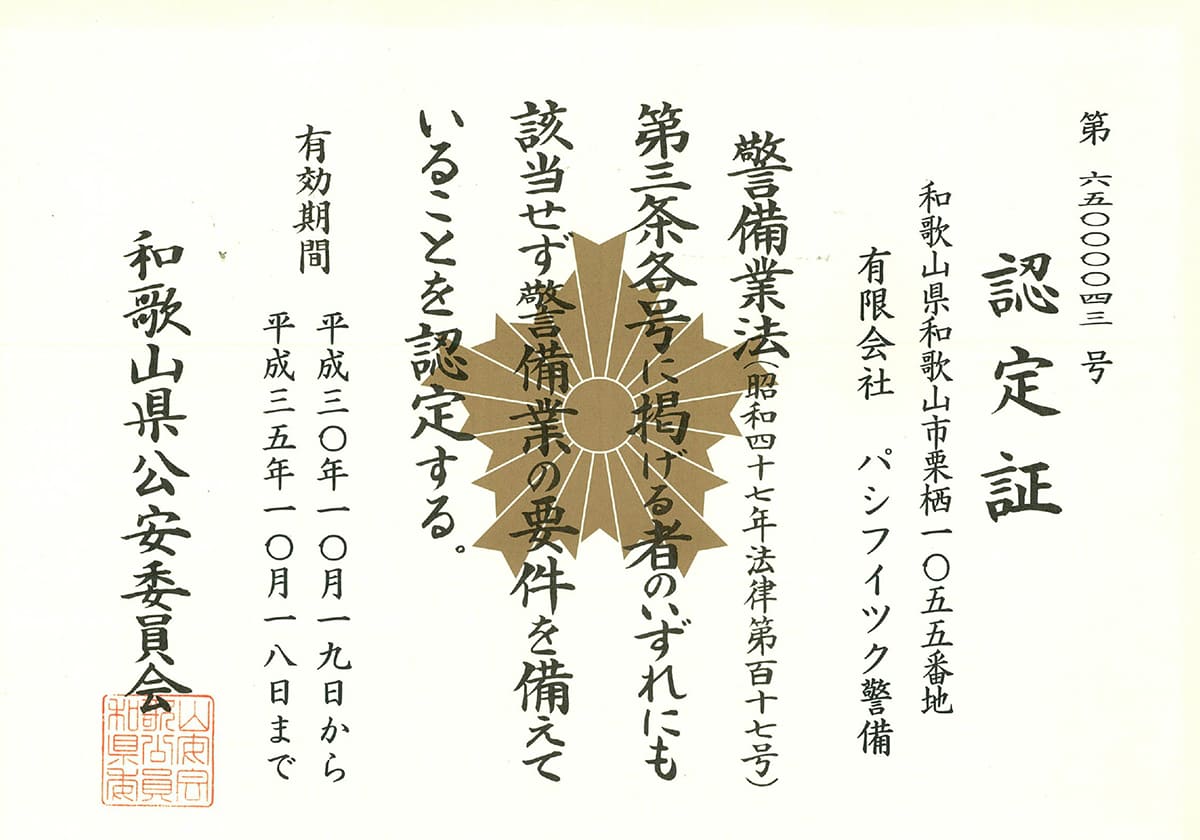 第 六五〇〇〇〇四三 号
認定証
和歌山県和歌山市栗栖一〇五五番地
有限会社 パシフイツク警備
警備業法(昭和四十七年法律第百十七号)
第三条各号に掲げる者のいずれにも
該当せず警備業の要件を備えて
いることを認定する。
有効期間
平成三〇年一〇月一九日から
平成三五年一〇月一八日まで
和歌山県公安委員会
和歌山県公安委員会